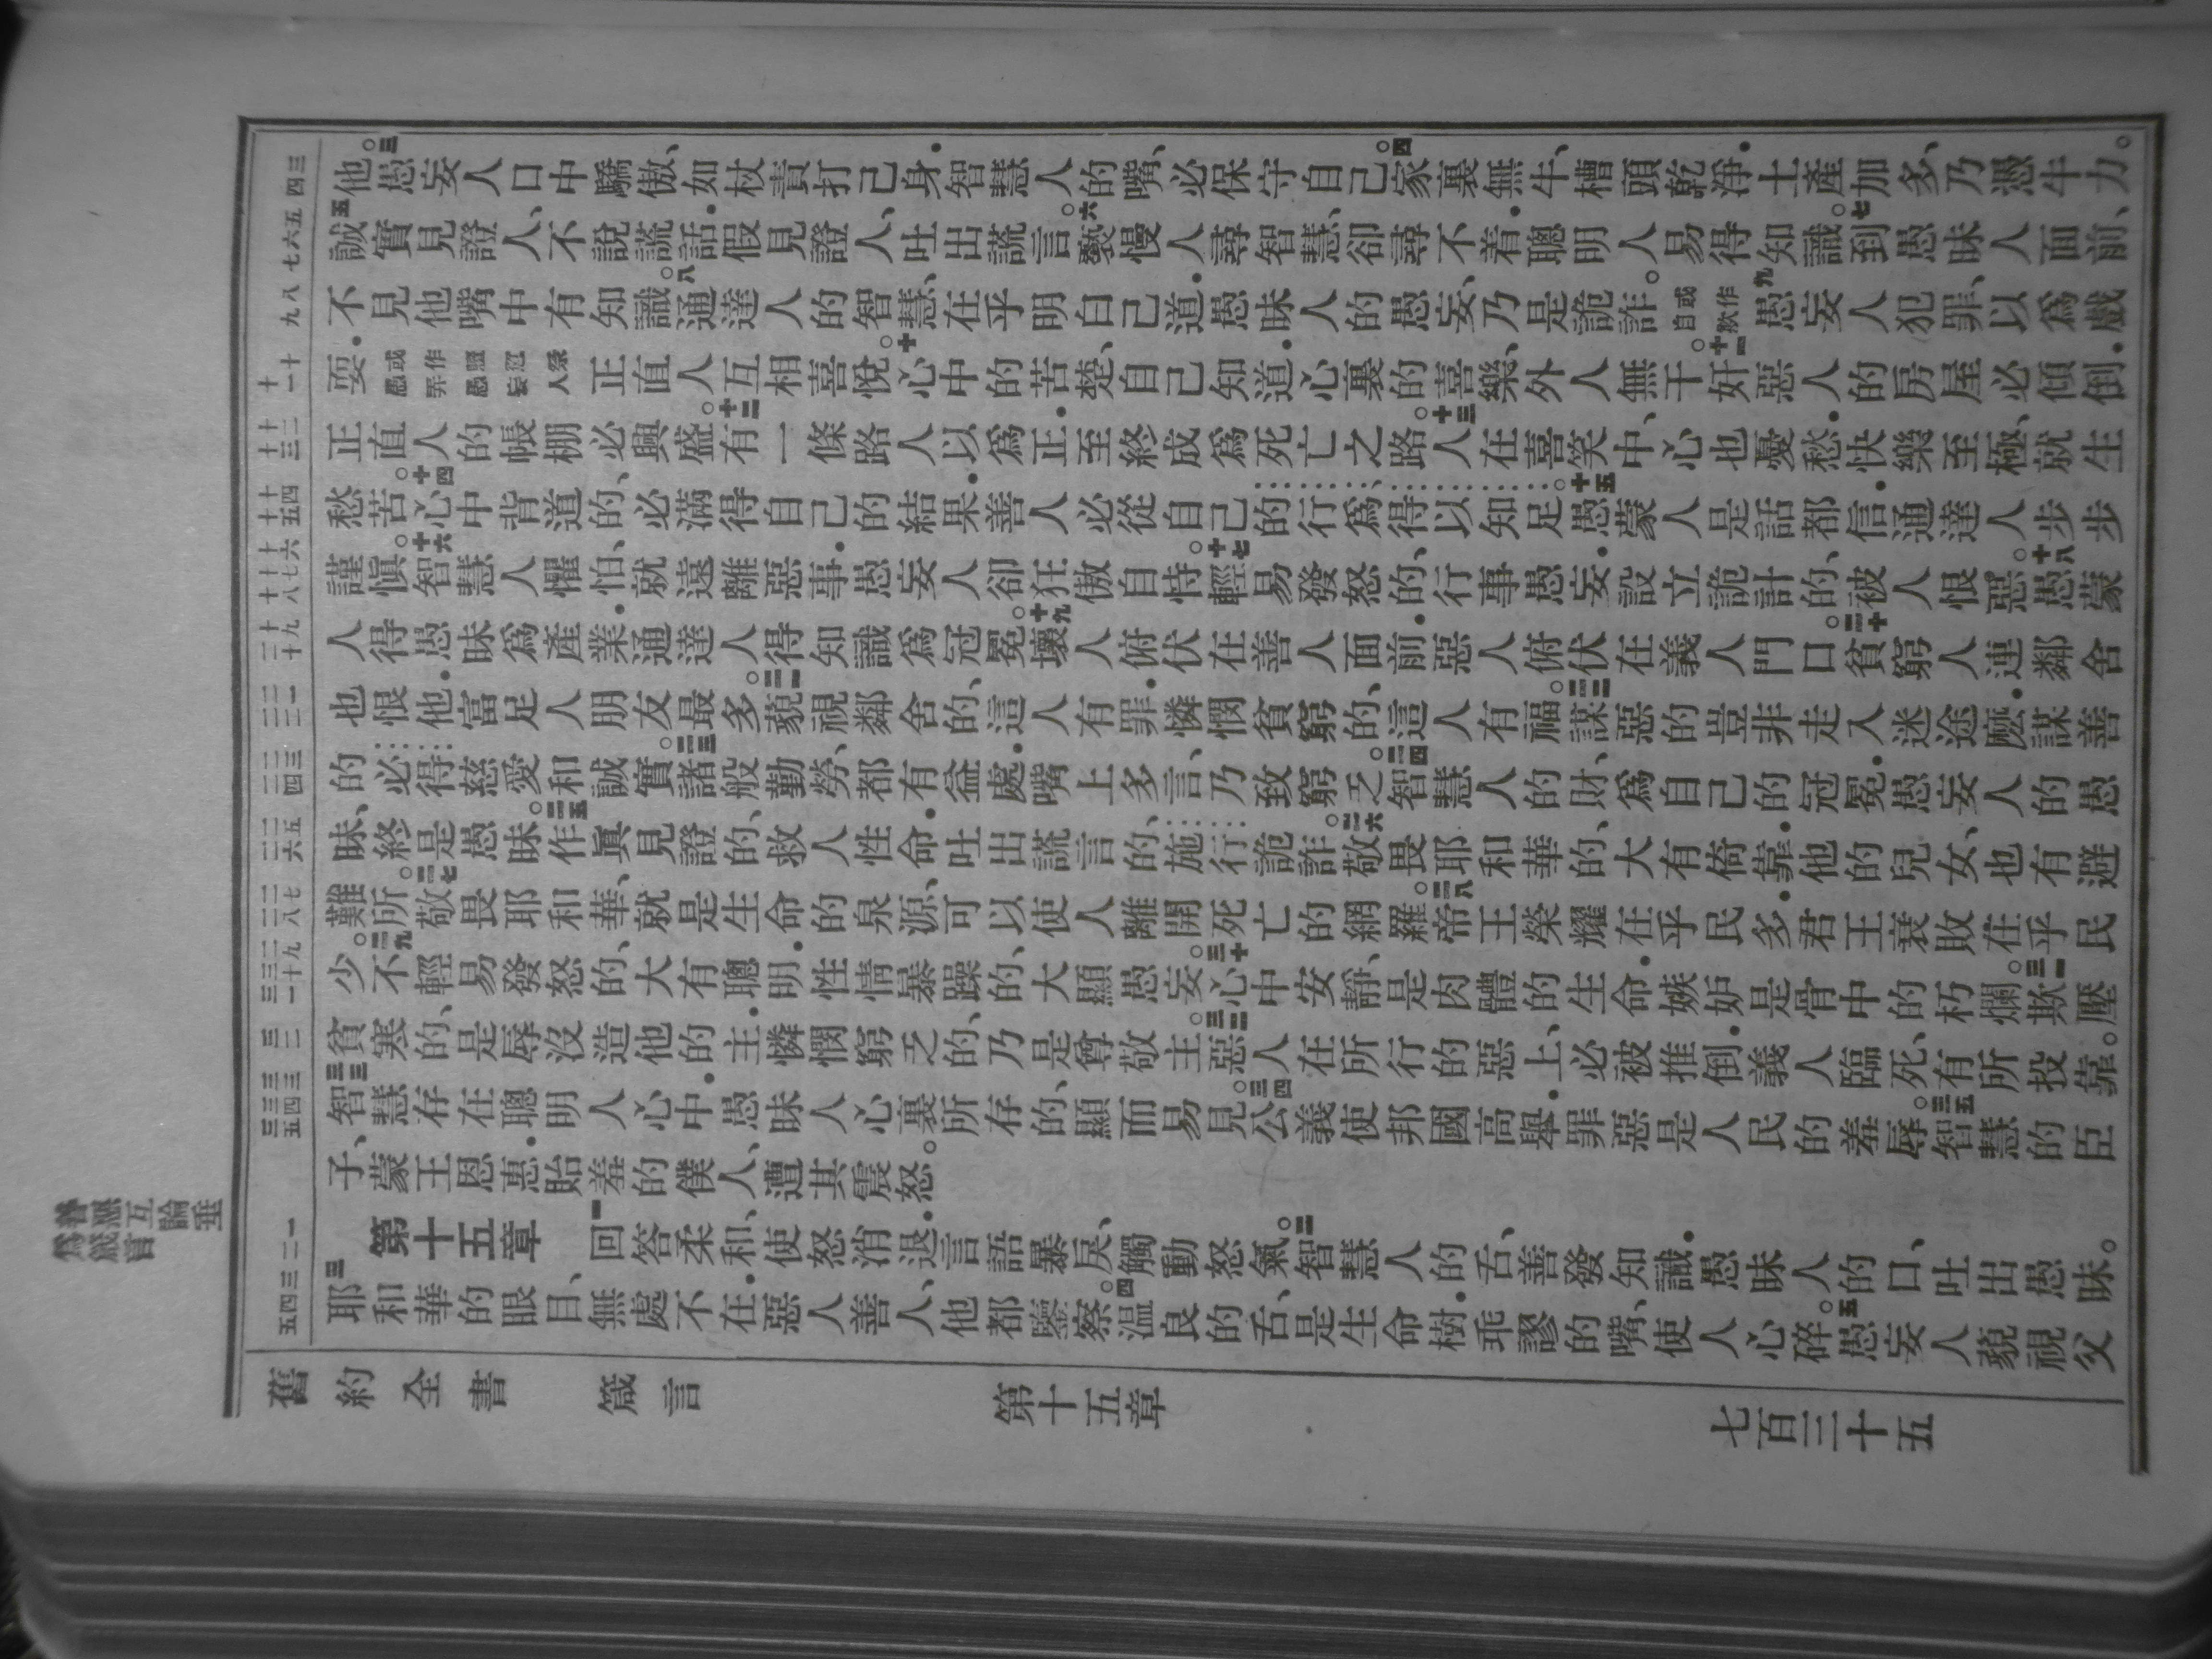 三 四
五 六 七
八 九
十 十一
十二 十三
十四 十五
十六 十七 十八
十九 二十
二一 二二
二三 二四
二五 二六
二七 二八
二九 三十 三一
三二
三三 三四 三五
一 二
三 四 五
他。三愚妄人口中驕傲、如杖責打己身.智慧人的嘴、必保守自己。四家裏無牛、槽頭乾淨.土產加多、乃憑牛力。
五誠實見證人、不說謊話.假見證人、吐出謊言。六褻慢人尋智慧、卻尋不着.聰明人易得知識。七到愚昧人面前、
不見他嘴中有知識。八通達人的智慧、在乎明白己道.愚昧人的愚妄、乃是詭詐。或作自欺九愚妄人犯罪、以爲戲
耍.或作愚弄愚妄人正直人互相喜悅。十心中的苦楚、自己知道.心裏的喜樂、外人無干。十一奸惡人的房屋必傾倒.
正直人的帳棚必興盛。十二有一條路人以爲正.至終成爲死亡之路。十三人在喜笑中、心也憂愁.快樂至極、就生
愁苦。十四心中背道的、必滿得自己的結果.善人必從自己的行爲、得以知足。十五愚蒙人是話都信.通達人步步
謹愼。十六智慧人懼怕、就遠離惡事.愚妄人卻狂傲自恃。十七輕易發怒的、行事愚妄.設立詭計的、被人恨惡。十八愚蒙
人得愚昧爲產業.通達人得知識爲冠冕。十九壞人俯伏在善人面前.惡人俯伏在義人門口。二十貧窮人連鄰舍
也恨他.富足人朋友最多。二一藐視鄰舍的、這人有罪.憐憫貧窮的、這人有福。二二謀惡的豈非走入迷途麽.謀善
的必得慈愛和誠實。二三諸般勤勞、都有益處.嘴上多言、乃致窮乏。二四智慧人的財、爲自己的冠冕.愚妄人的愚
昧、終是愚昧。二五作眞見證的、救人性命.吐出謊言的、施行詭詐。二六敬畏耶和華的、大有倚靠.他的兒女、也有避
難所。二七敬畏耶和華、就是生命的泉源、可以使人離開死亡的網羅。二八帝王榮耀在乎民多.君王衰敗在乎民
少。二九不輕易發怒的、大有聰明.性情暴躁的、大顯愚妄。三十心中安靜、是肉體的生命.嫉妒是骨中的朽爛。三一欺壓
貧寒的、是辱沒造他的主.憐憫窮乏的、乃是尊敬主。三二惡人在所行的惡上、必被推倒.義人臨死、有所投靠。
三三智慧存在聰明人心中.愚昧人心裏所存的、顯而易見。三四公義使邦國高舉.罪惡是人民的羞辱。三五智慧的臣
子、蒙王恩惠.貽羞的僕人、遭其震怒。
第十五章 一回答柔和、使怒消退.言語暴戾、觸動怒氣。二智慧人的舌、善發知識.愚昧人的口、吐出愚昧。
三耶和華的眼目、無處不在.惡人善人、他都鑒察。四溫良的舌、是生命樹.乖謬的嘴、使人心碎。五愚妄人藐視父
善惡互論垂
爲箴言
舊約全書 箴言 第十五章 七百三十五